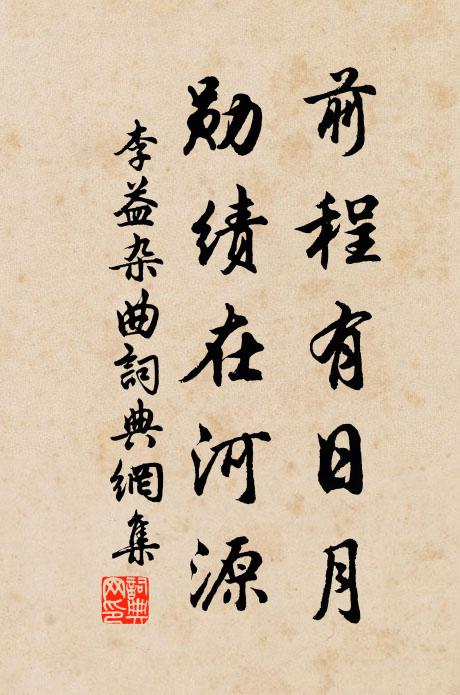 前程有日月
勋绩在河源
李益杂曲詞典網集
詞典網印